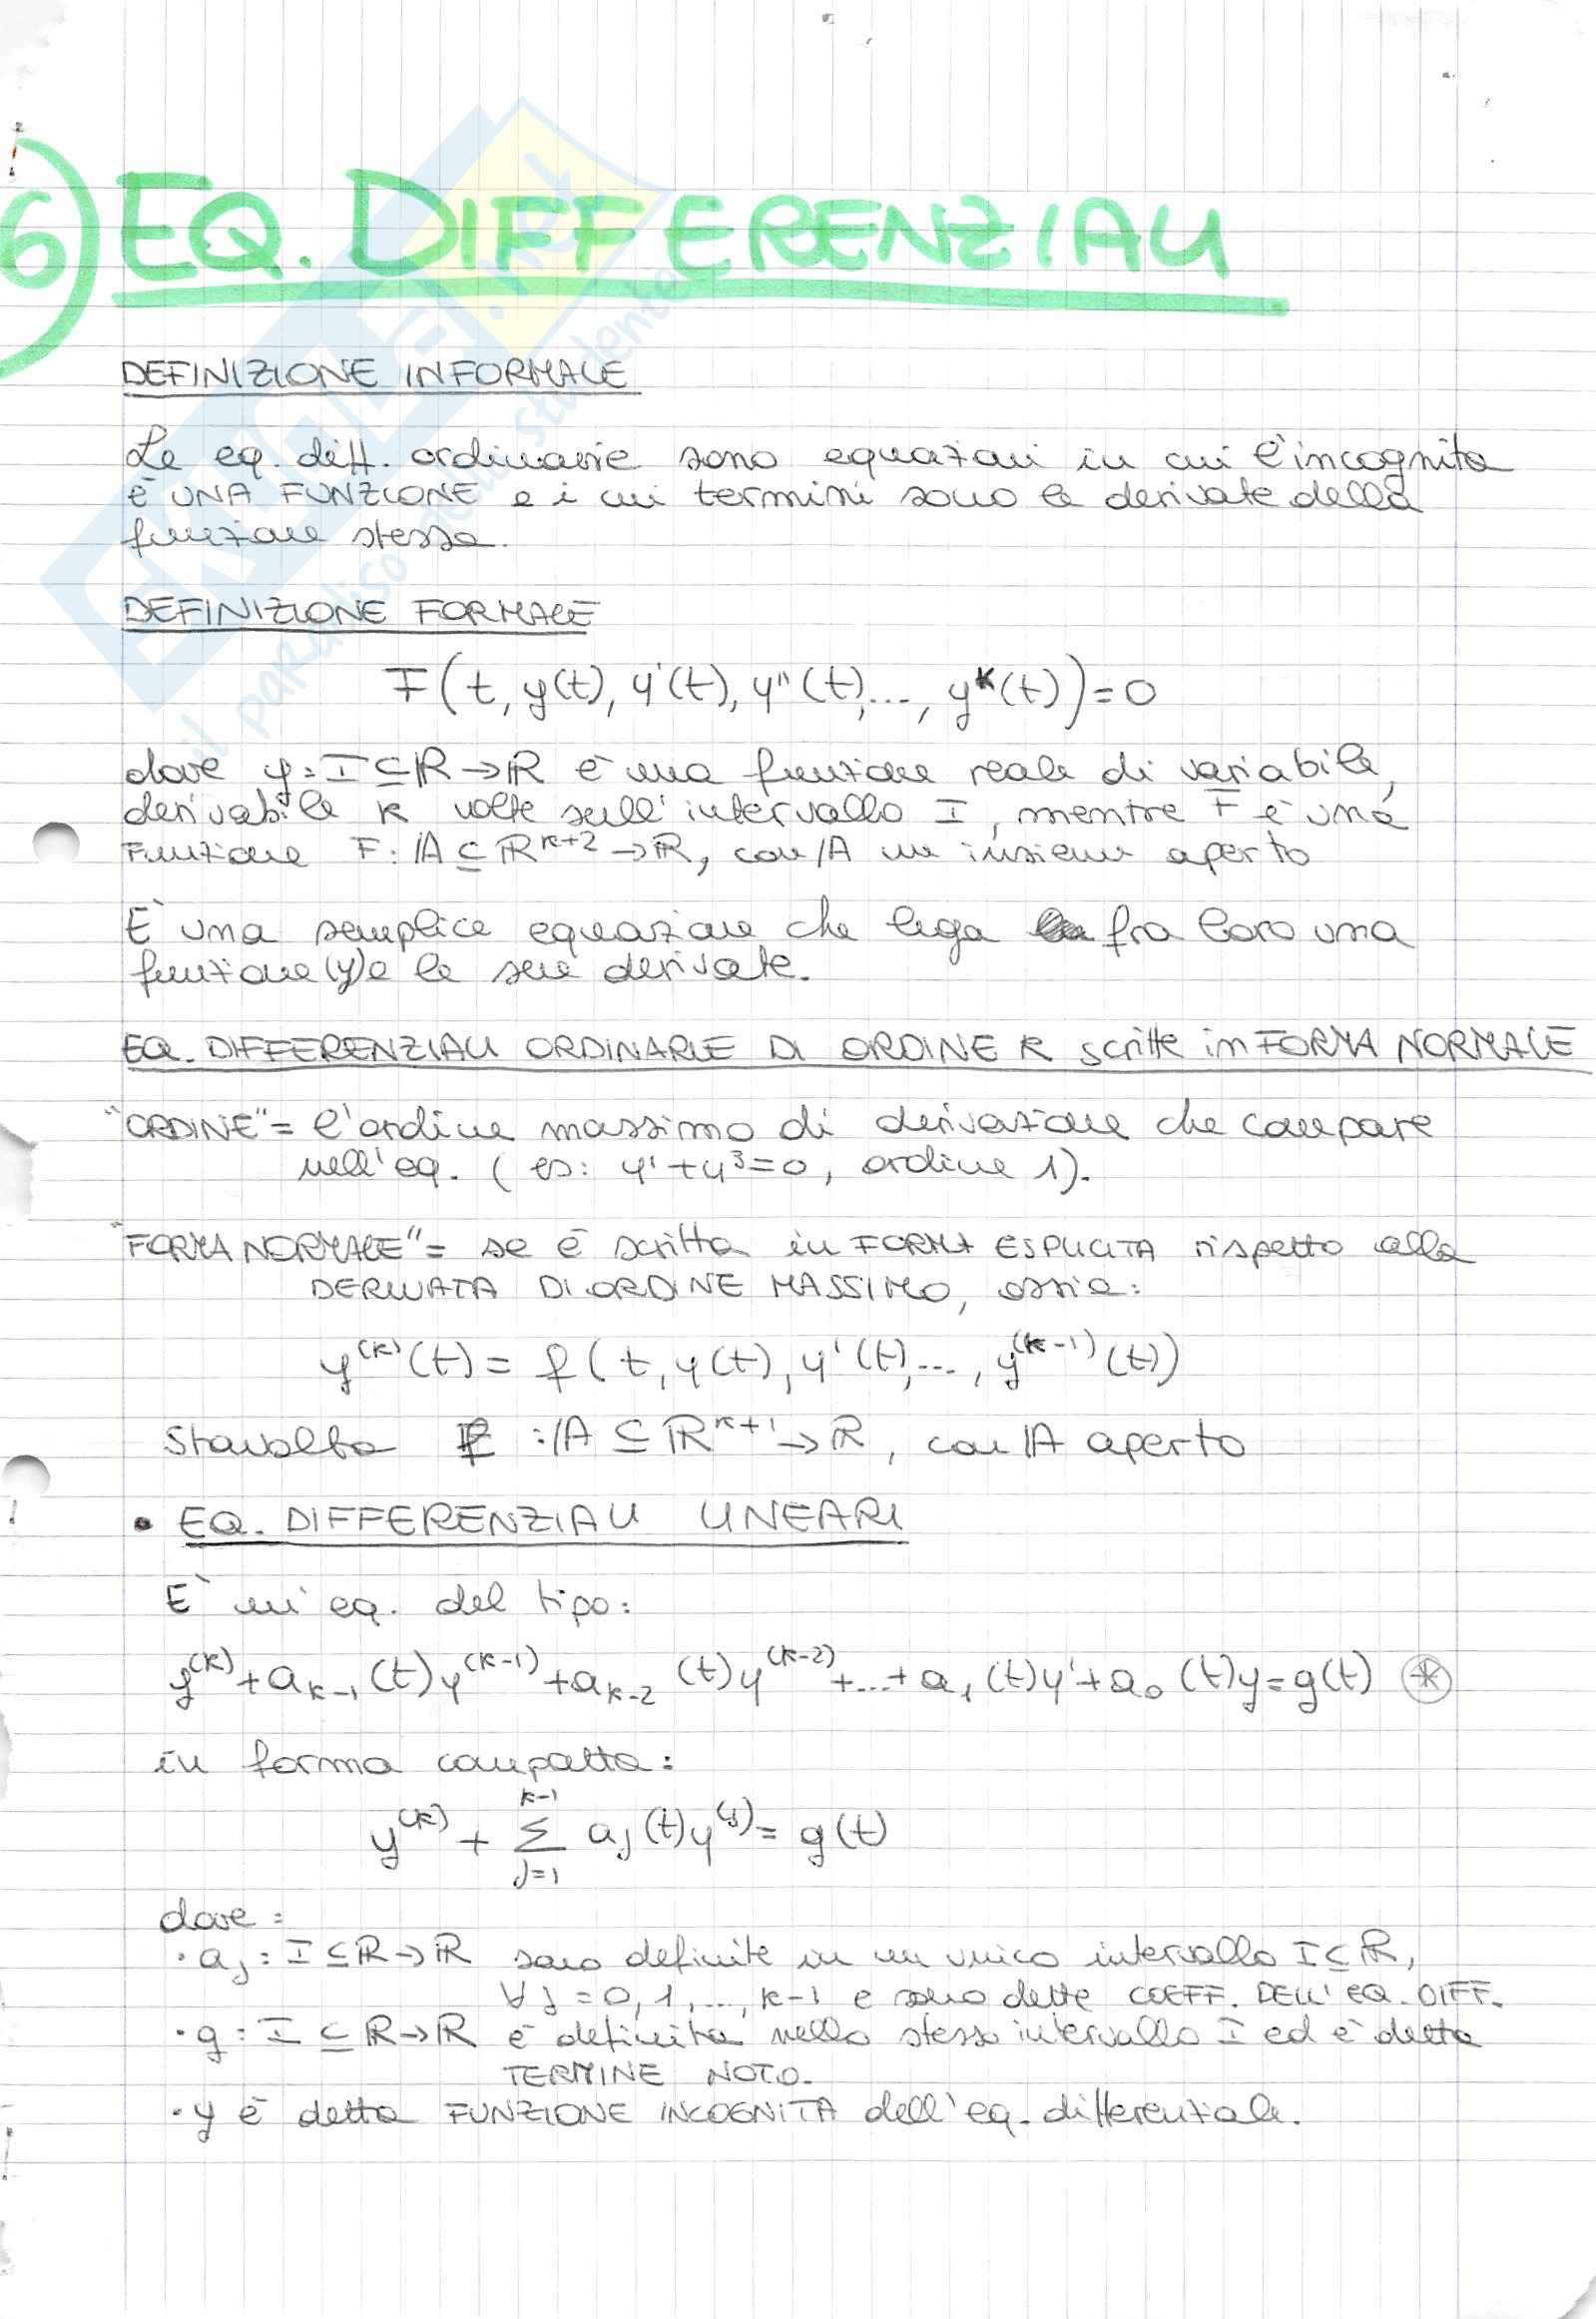 6) EQ. DIFFERENZIALI
DEFINIZIONE INFORMALE
Le eq. diff. ordinarie sono equazioni in cui l'incognita
è UNA FUNZIONE e i cui termini sono le derivate della
funzione stessa.
DEFINIZIONE FORMALE
F(t, y(t), y'(t), y''(t),..., y^k(t))=0
dove y: I ⊆ ℝ → ℝ è una funzione reale di variabile,
derivabile k volte sull'intervallo I, mentre F è una
Funzione F: A ⊆ ℝ^{k+2} → ℝ, con A un insieme aperto
E' una semplice equazione che lega fra loro una
funzione (y) e le sue derivate.
EQ. DIFFERENZIALI ORDINARIE DI ORDINE K scritte in FORMA NORMALE
"ORDINE" = l'ordine massimo di derivazione che compare
nell'eq. (es: y'+y³=0, ordine 1).
"FORMA NORMALE" = se è scritta in FORMA ESPLICITA rispetto alla
DERIVATA DI ORDINE MASSIMO, ossia:
y^(k)(t) = f(t, y(t), y'(t),..., y^(k-1)(t))
Stavolta f : A ⊆ ℝ^{k+1} → ℝ, con A aperto
• EQ. DIFFERENZIALI LINEARI
E' un'eq. del tipo:
y^(k) + a_{k-1}(t)y^(k-1) + a_{k-2}(t)y^(k-2) +...+ a_1(t)y' + a_0(t)y = g(t) ⊛
in forma compatta:
y^(k) + Σ_{j=1}^{k-1} a_j(t)y^(j) = g(t)
dove:
· a_j : I ⊆ ℝ → ℝ sono definite in un unico intervallo I ⊆ ℝ,
∀ j = 0, 1, ..., k-1 e sono dette COEFF. DELL'EQ. DIFF.
· g : I ⊆ ℝ → ℝ è definita nello stesso intervallo I ed è detta
TERMINE NOTO.
· y è detta FUNZIONE INCOGNITA dell'eq. differenziale.
EXGLE.net
il paradiso dello studente